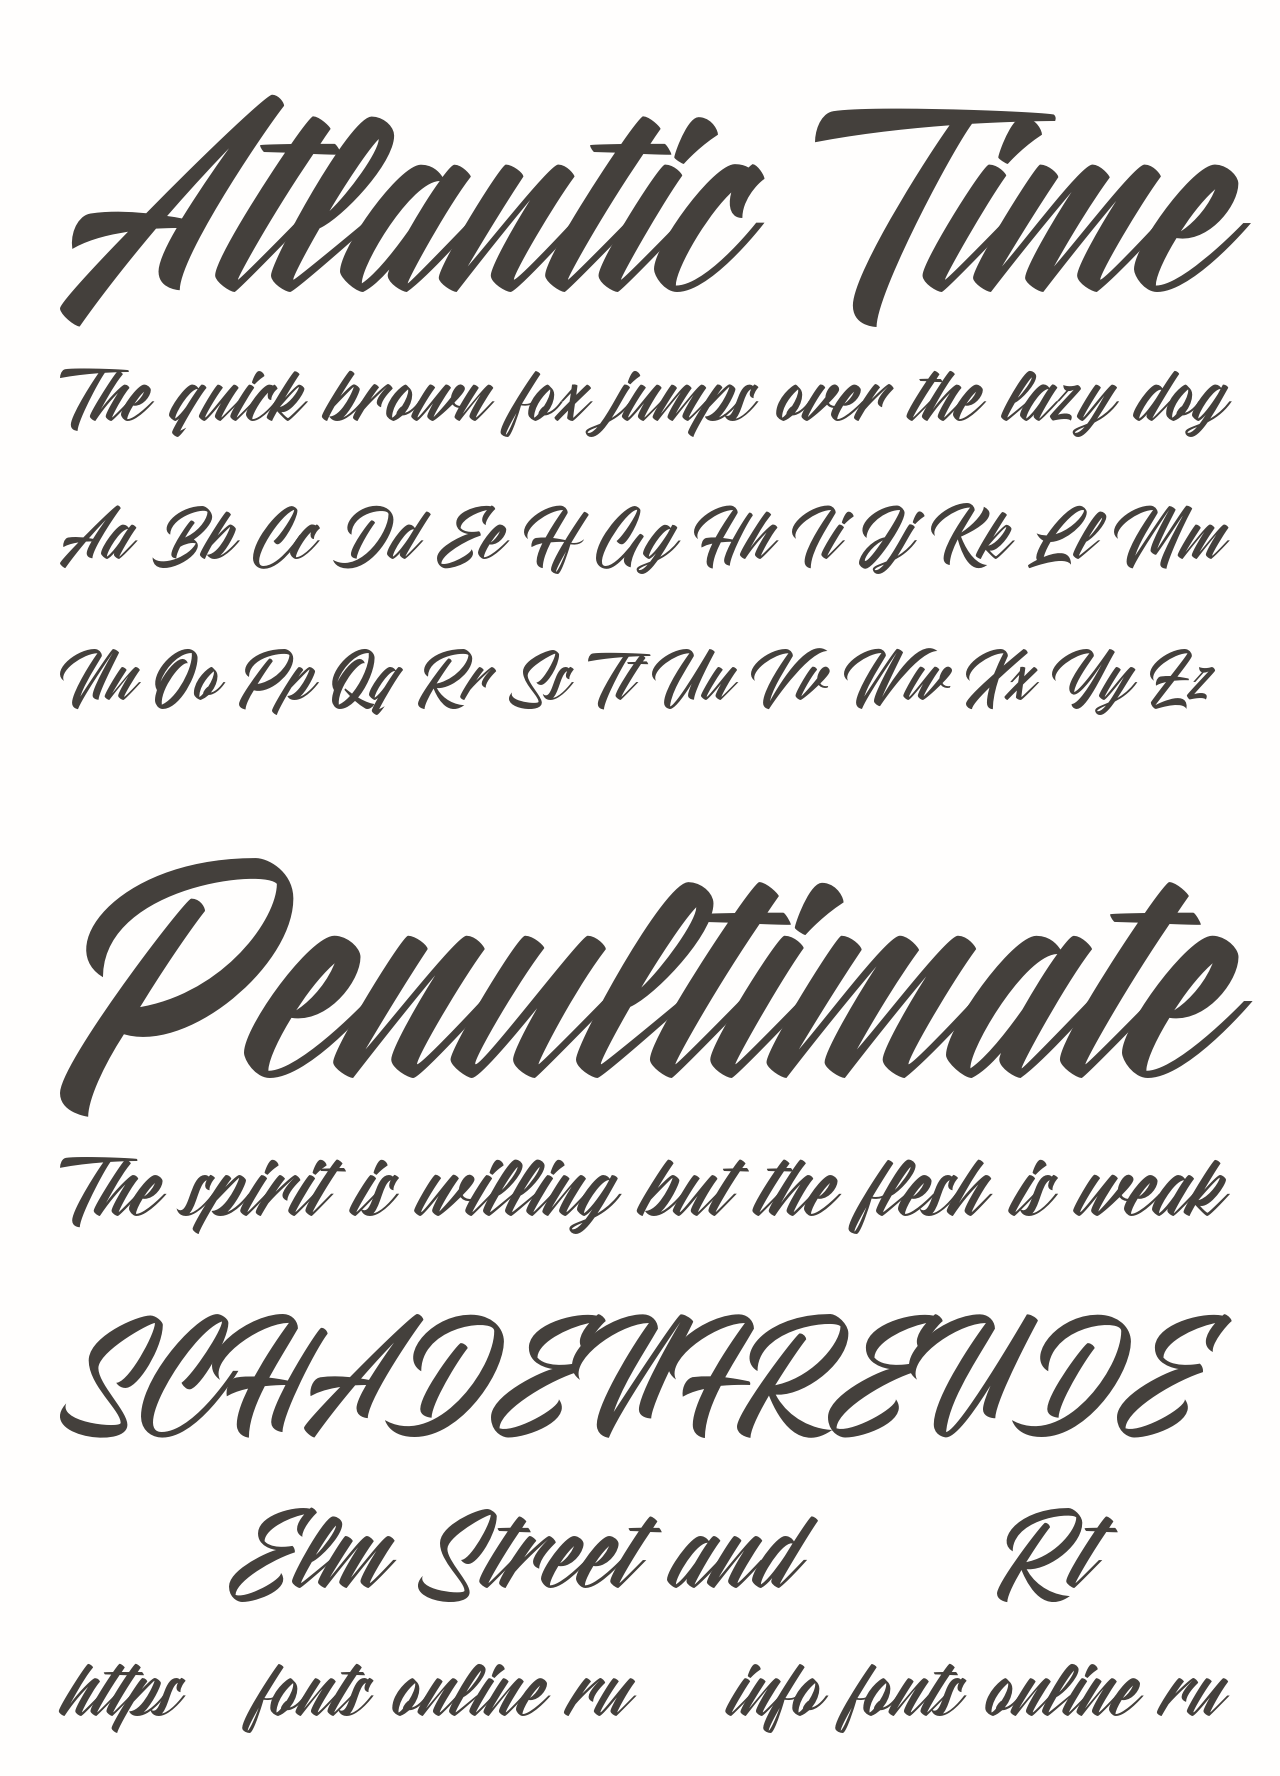 Atlantic Time
The quick brown fox jumps over the lazy dog
Aa Bb Cc Dd Ee Ff Gg Hh Ii Jj Kk Ll Mm
Nn Oo Pp Qq Rr Ss Tt Uu Vv Ww Xx Yy Zz
Penultimate
The spirit is willing but the flesh is weak
SCHADENFREUDE
Elm Street and Rt
https fonts online ru info fonts online ru